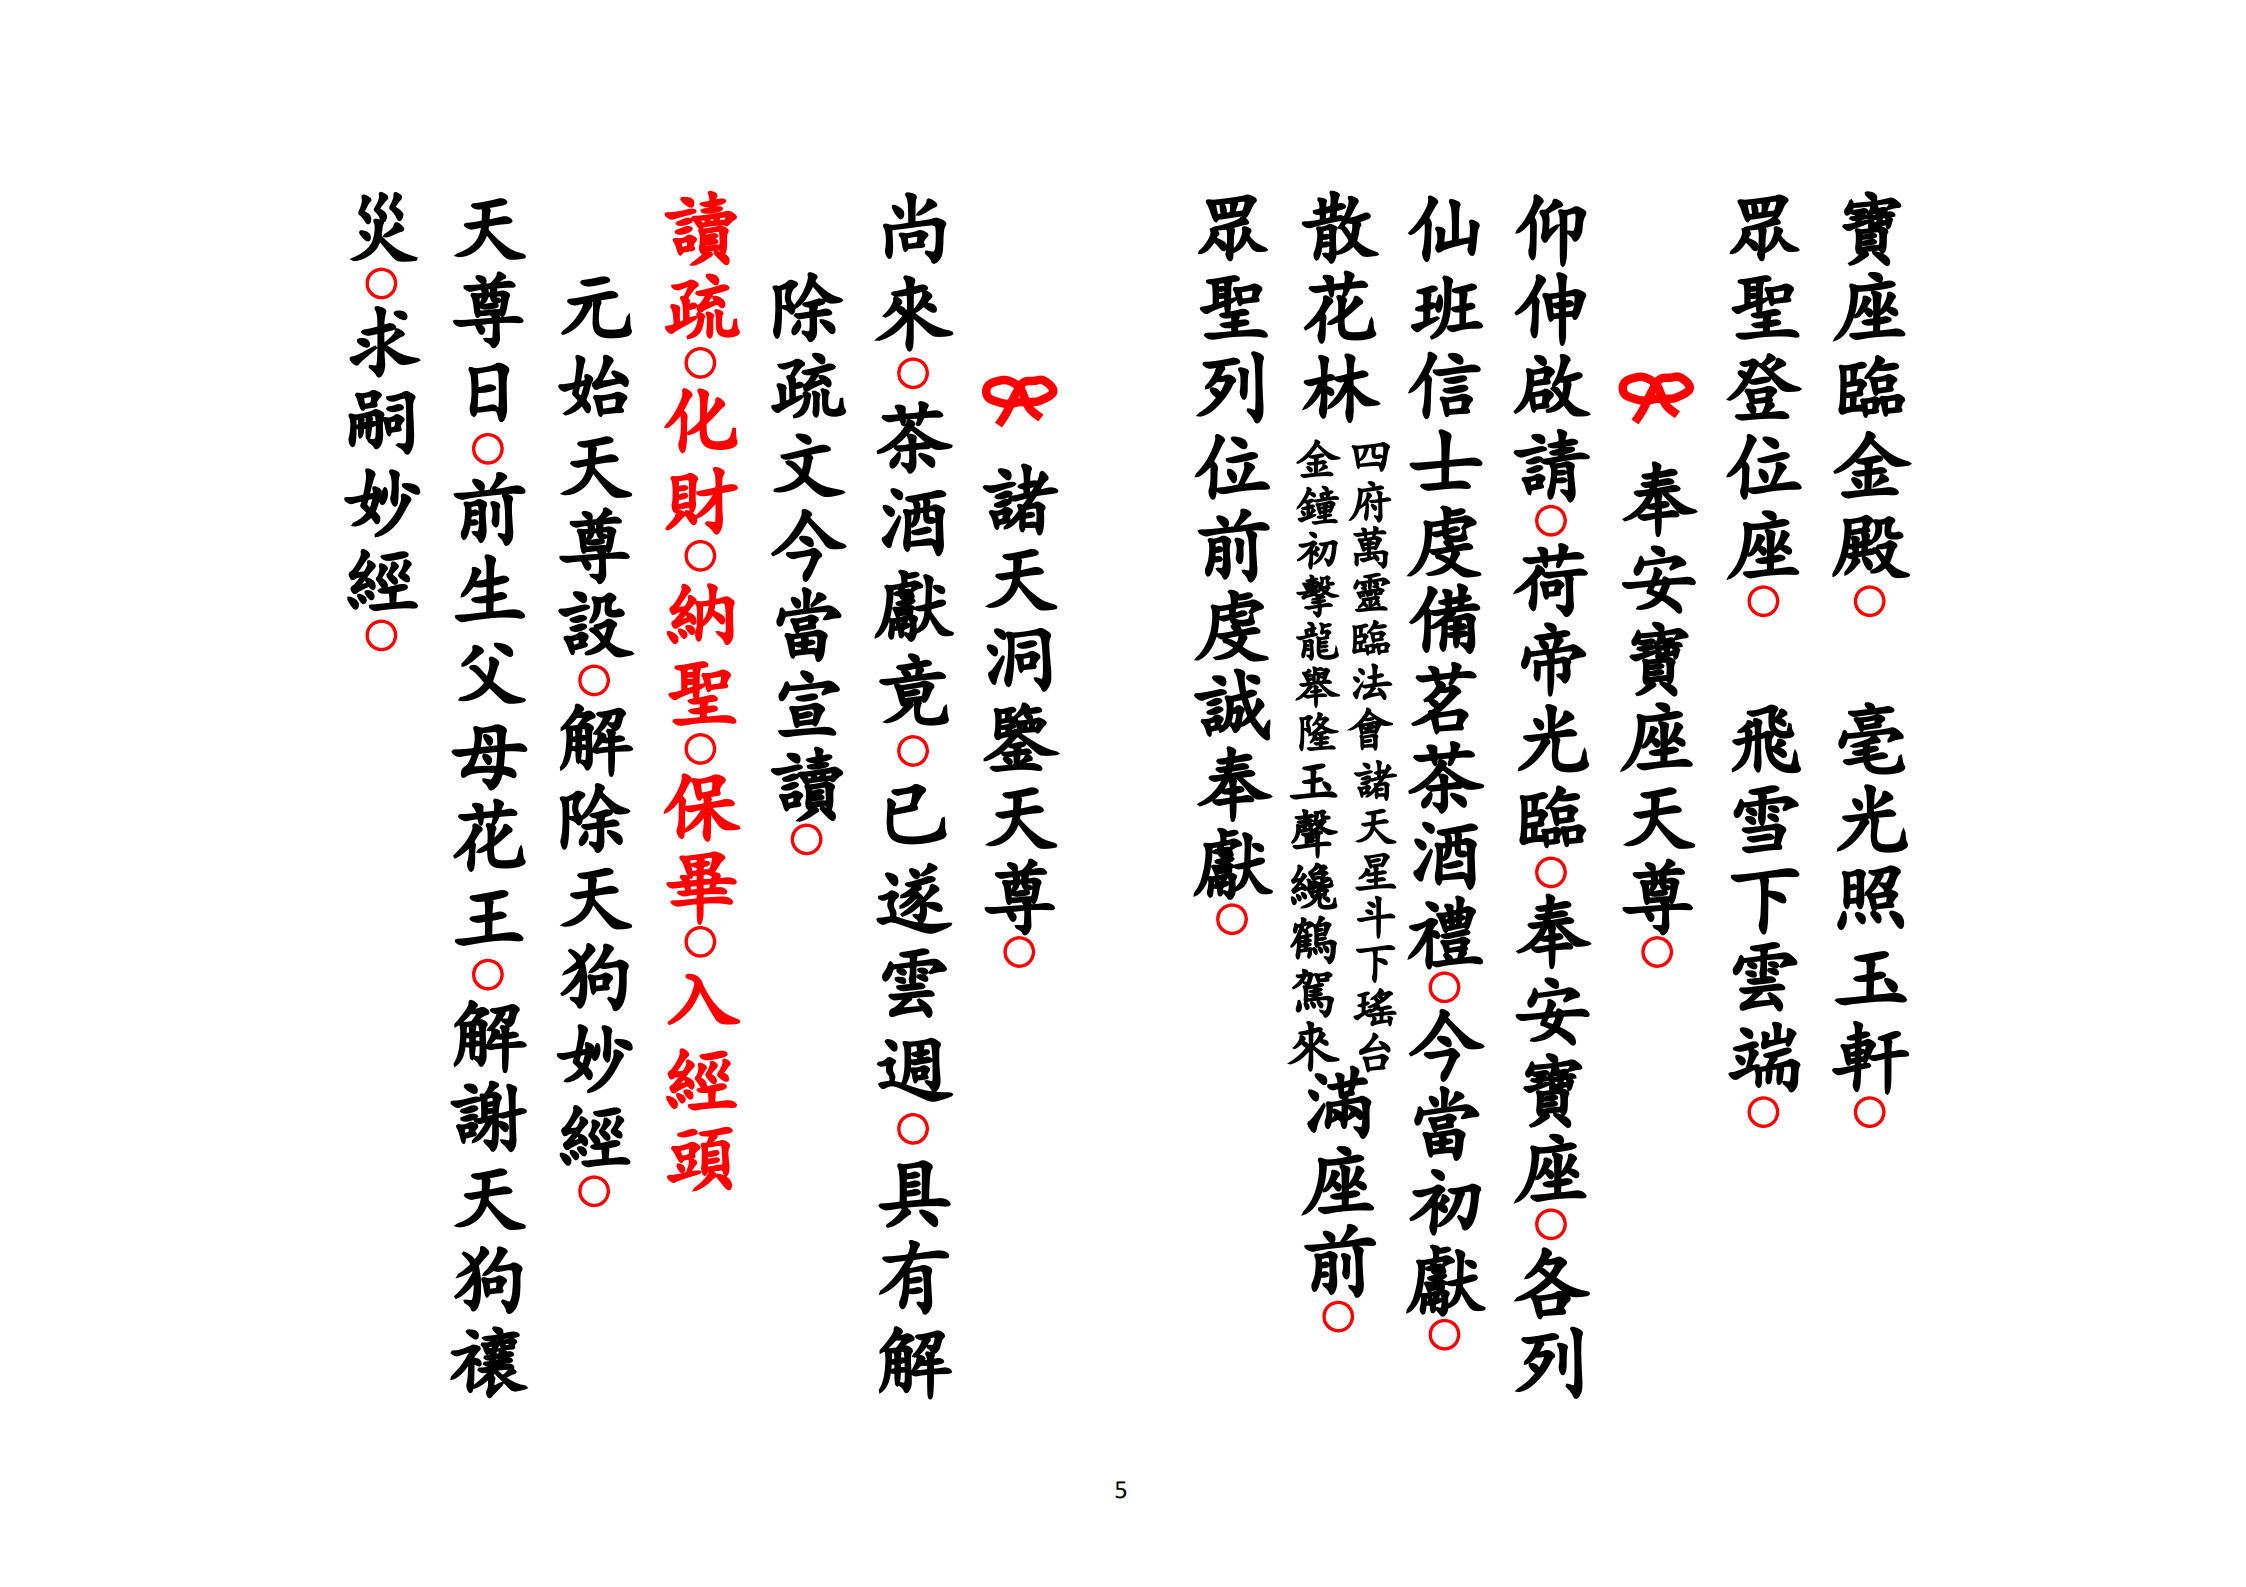 寶座臨金殿○　毫光照玉軒○
眾聖登位座○　飛雪下雲端○
奉安寶座天尊○
仰伸啟請○荷帝光臨○奉安寶座○各列
仙班信士虔備茗茶酒禮○今當初獻○
散花林　四府萬靈臨法會　諸天星斗下瑤台
金鐘初擊龍舉隆　玉聲纔鶴駕來　滿座前○
眾聖列位前虔誠奉獻○
諸天洞鑒天尊○
尚來○茶酒獻竟○已遂雲週○具有解
除疏文今當宣讀○
讀疏○化財○納聖○保畢○入經頭
元始天尊設○解除天狗妙經○
天尊日○前生父母花王○解謝天狗禳
災○求嗣妙經○
5